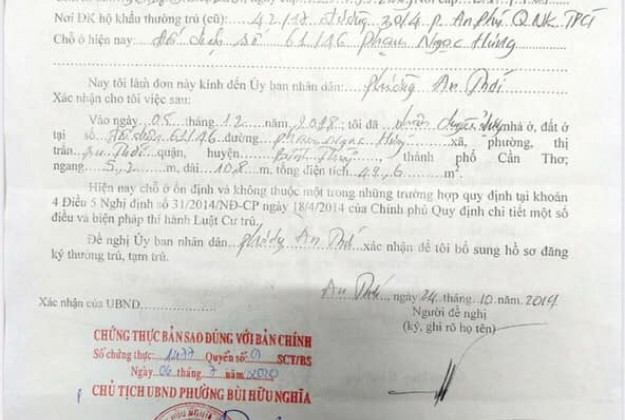 Nơi ĐK hộ khẩu thường trú (cũ): 42/18 đường 30/4 P. An Phú Q. NK TPCT
Chỗ ở hiện nay: số 61/46 Phạm Ngọc Hưng
Nay tôi làm đơn này kính đến Ủy ban nhân dân: phường An Thới
Xác nhận cho tôi việc sau:
Vào ngày 05 tháng 12 năm 2018; tôi đã nhà ở, đất ở
tại số 61/46 đường Phạm Ngọc Hưng xã, phường, thị
trấn An Thới quận, huyện Bình Thủy, thành phố Cần Thơ;
ngang 5,2 m, dài 10,8 m, tổng diện tích 49,6 m².
Hiện nay chỗ ở ổn định và không thuộc một trong những trường hợp quy định tại khoản
4 Điều 5 Nghị định số 31/2014/NĐ-CP ngày 18/4/2014 của Chính phủ Quy định chi tiết một số
điều và biện pháp thi hành Luật Cư trú.
Đề nghị Ủy ban nhân dân phường An Thới xác nhận để tôi bổ sung hồ sơ đăng
ký thường trú, tạm trú.
An Thới, ngày 24 tháng 10 năm 2019
Xác nhận của UBND
Người đề nghị
(ký, ghi rõ họ tên)
CHỨNG THỰC BẢN SAO ĐÚNG VỚI BẢN CHÍNH
Số chứng thực: 1477 Quyển số: 01 SCT/BS
Ngày 06 tháng 7 / 2020
CHỦ TỊCH UBND PHƯỜNG BÙI HỮU NGHĨA